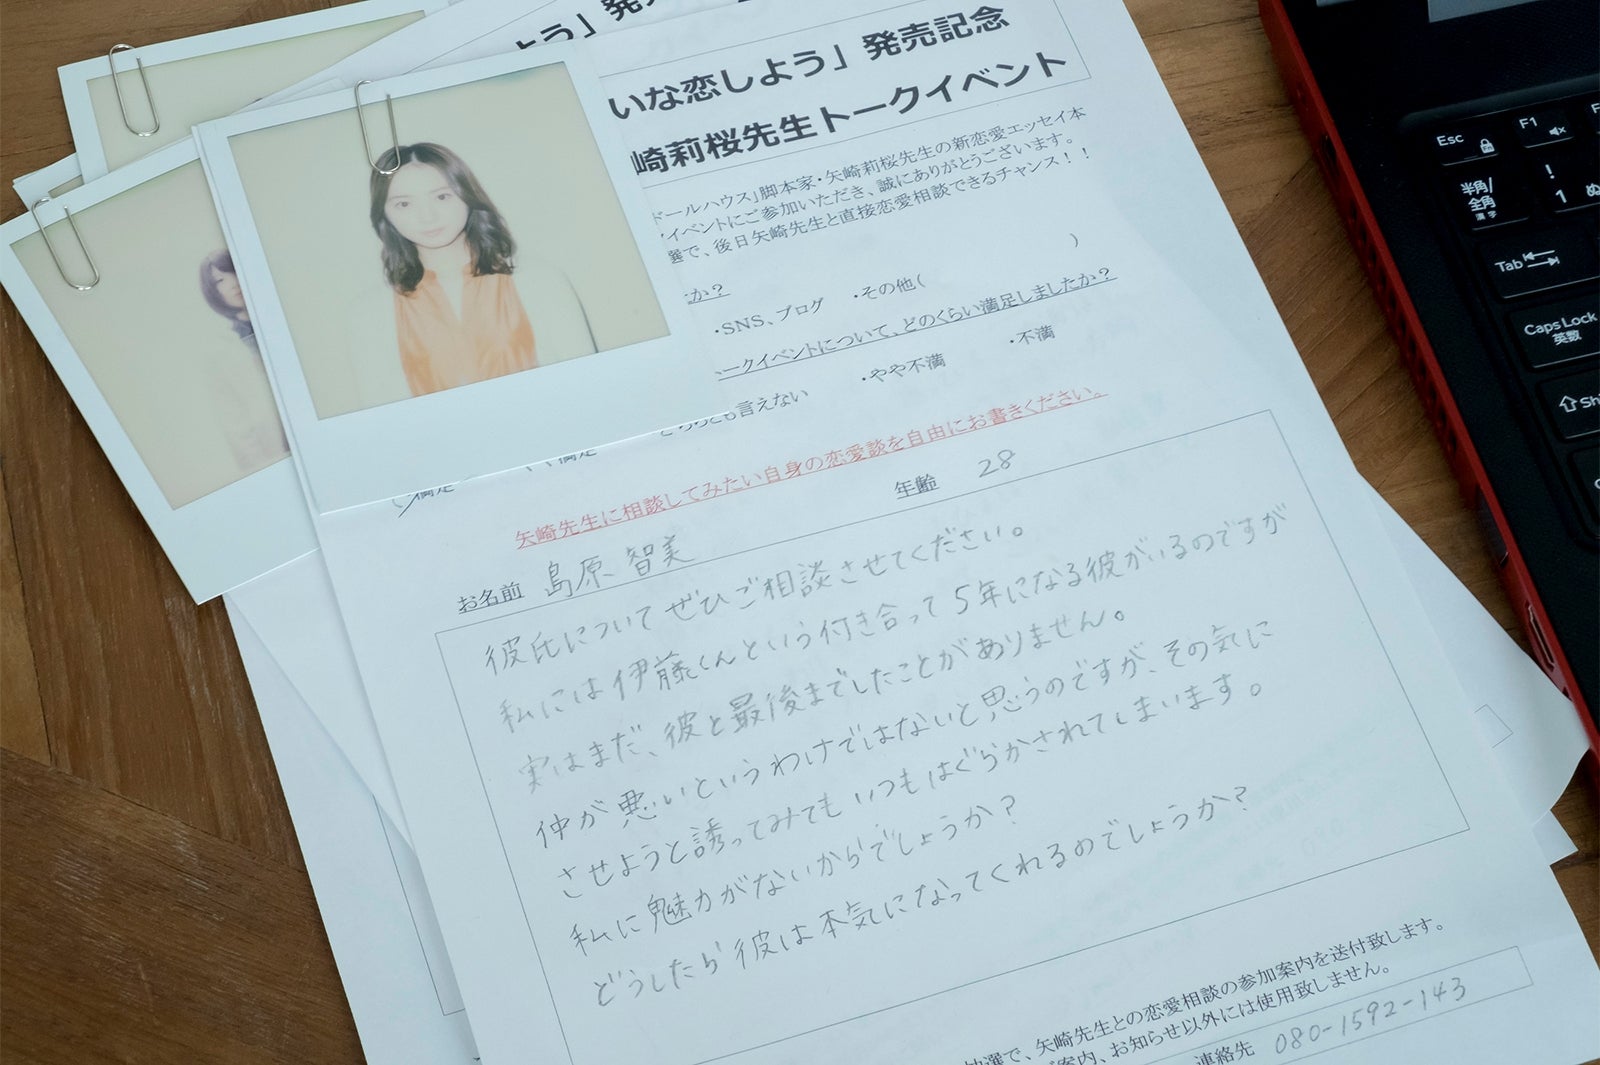 よう」発
いな恋しよう」発売記念
崎莉桜先生トークイベント
ドールハウス」脚本家・矢崎莉桜先生の新恋愛エッセイ本
イベントにご参加いただき、誠にありがとうございます。
選で、後日矢崎先生と直接恋愛相談できるチャンス！！
か？
・SNS、ブログ ・その他（ ）
ークイベントについて、どのくらい満足しましたか？
満足 やや満足 どちらとも言えない ・やや不満 ・不満
矢崎先生に相談してみたい自身の恋愛談を自由にお書きください。
お名前 島原 智美 年齢 28
彼氏についてぜひご相談させてください。
私には伊藤くんという付き合って5年になる彼がいるのですが
実はまだ、彼と最後までしたことがありません。
仲が悪いというわけではないと思うのですが、その気に
させようと誘ってみてもいつもはぐらかされてしまいます。
私に魅力がないからでしょうか？
どうしたら彼は本気になってくれるのでしょうか？
抽選で、矢崎先生との恋愛相談の参加案内を送付致します。
ご案内、お知らせ以外には使用致しません。
連絡先 080-1592-143
Esc F1
半角/
全角
漢字
! 1 ぬ
Tab
Caps Lock
英数
Shi